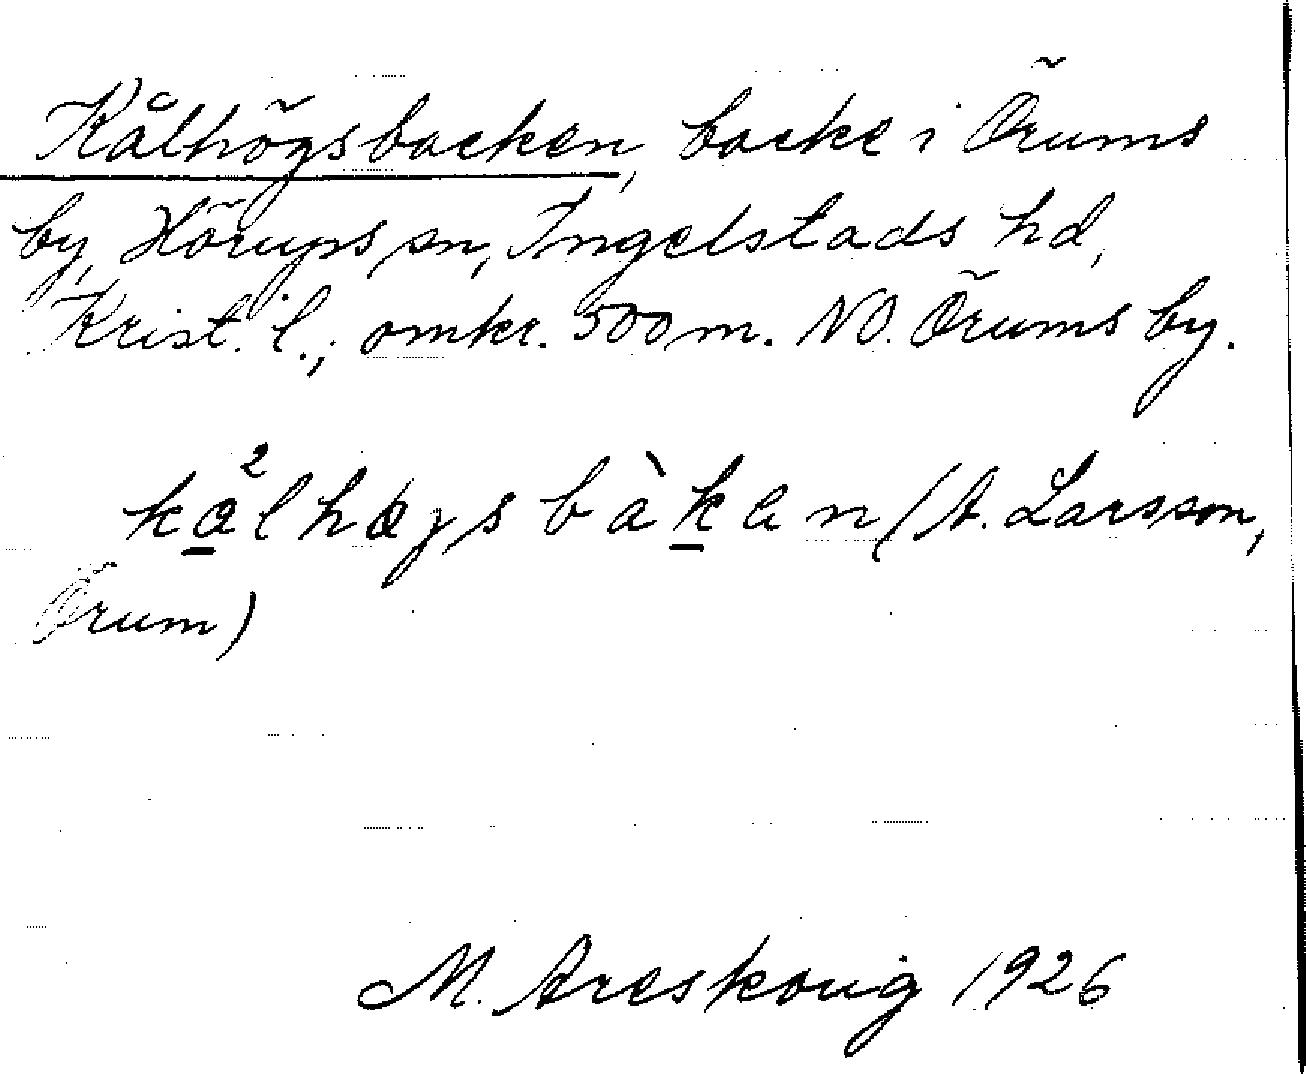 Kålhögsbacken, backe i Örums
by, Hörups sn, Ingelstads hd,
Krist. l., omkr. 500 m. NO. Örums by.
kå̱²lhøgs bàḵen (A. Larsson,
Örum)
M. Areskoug 1926